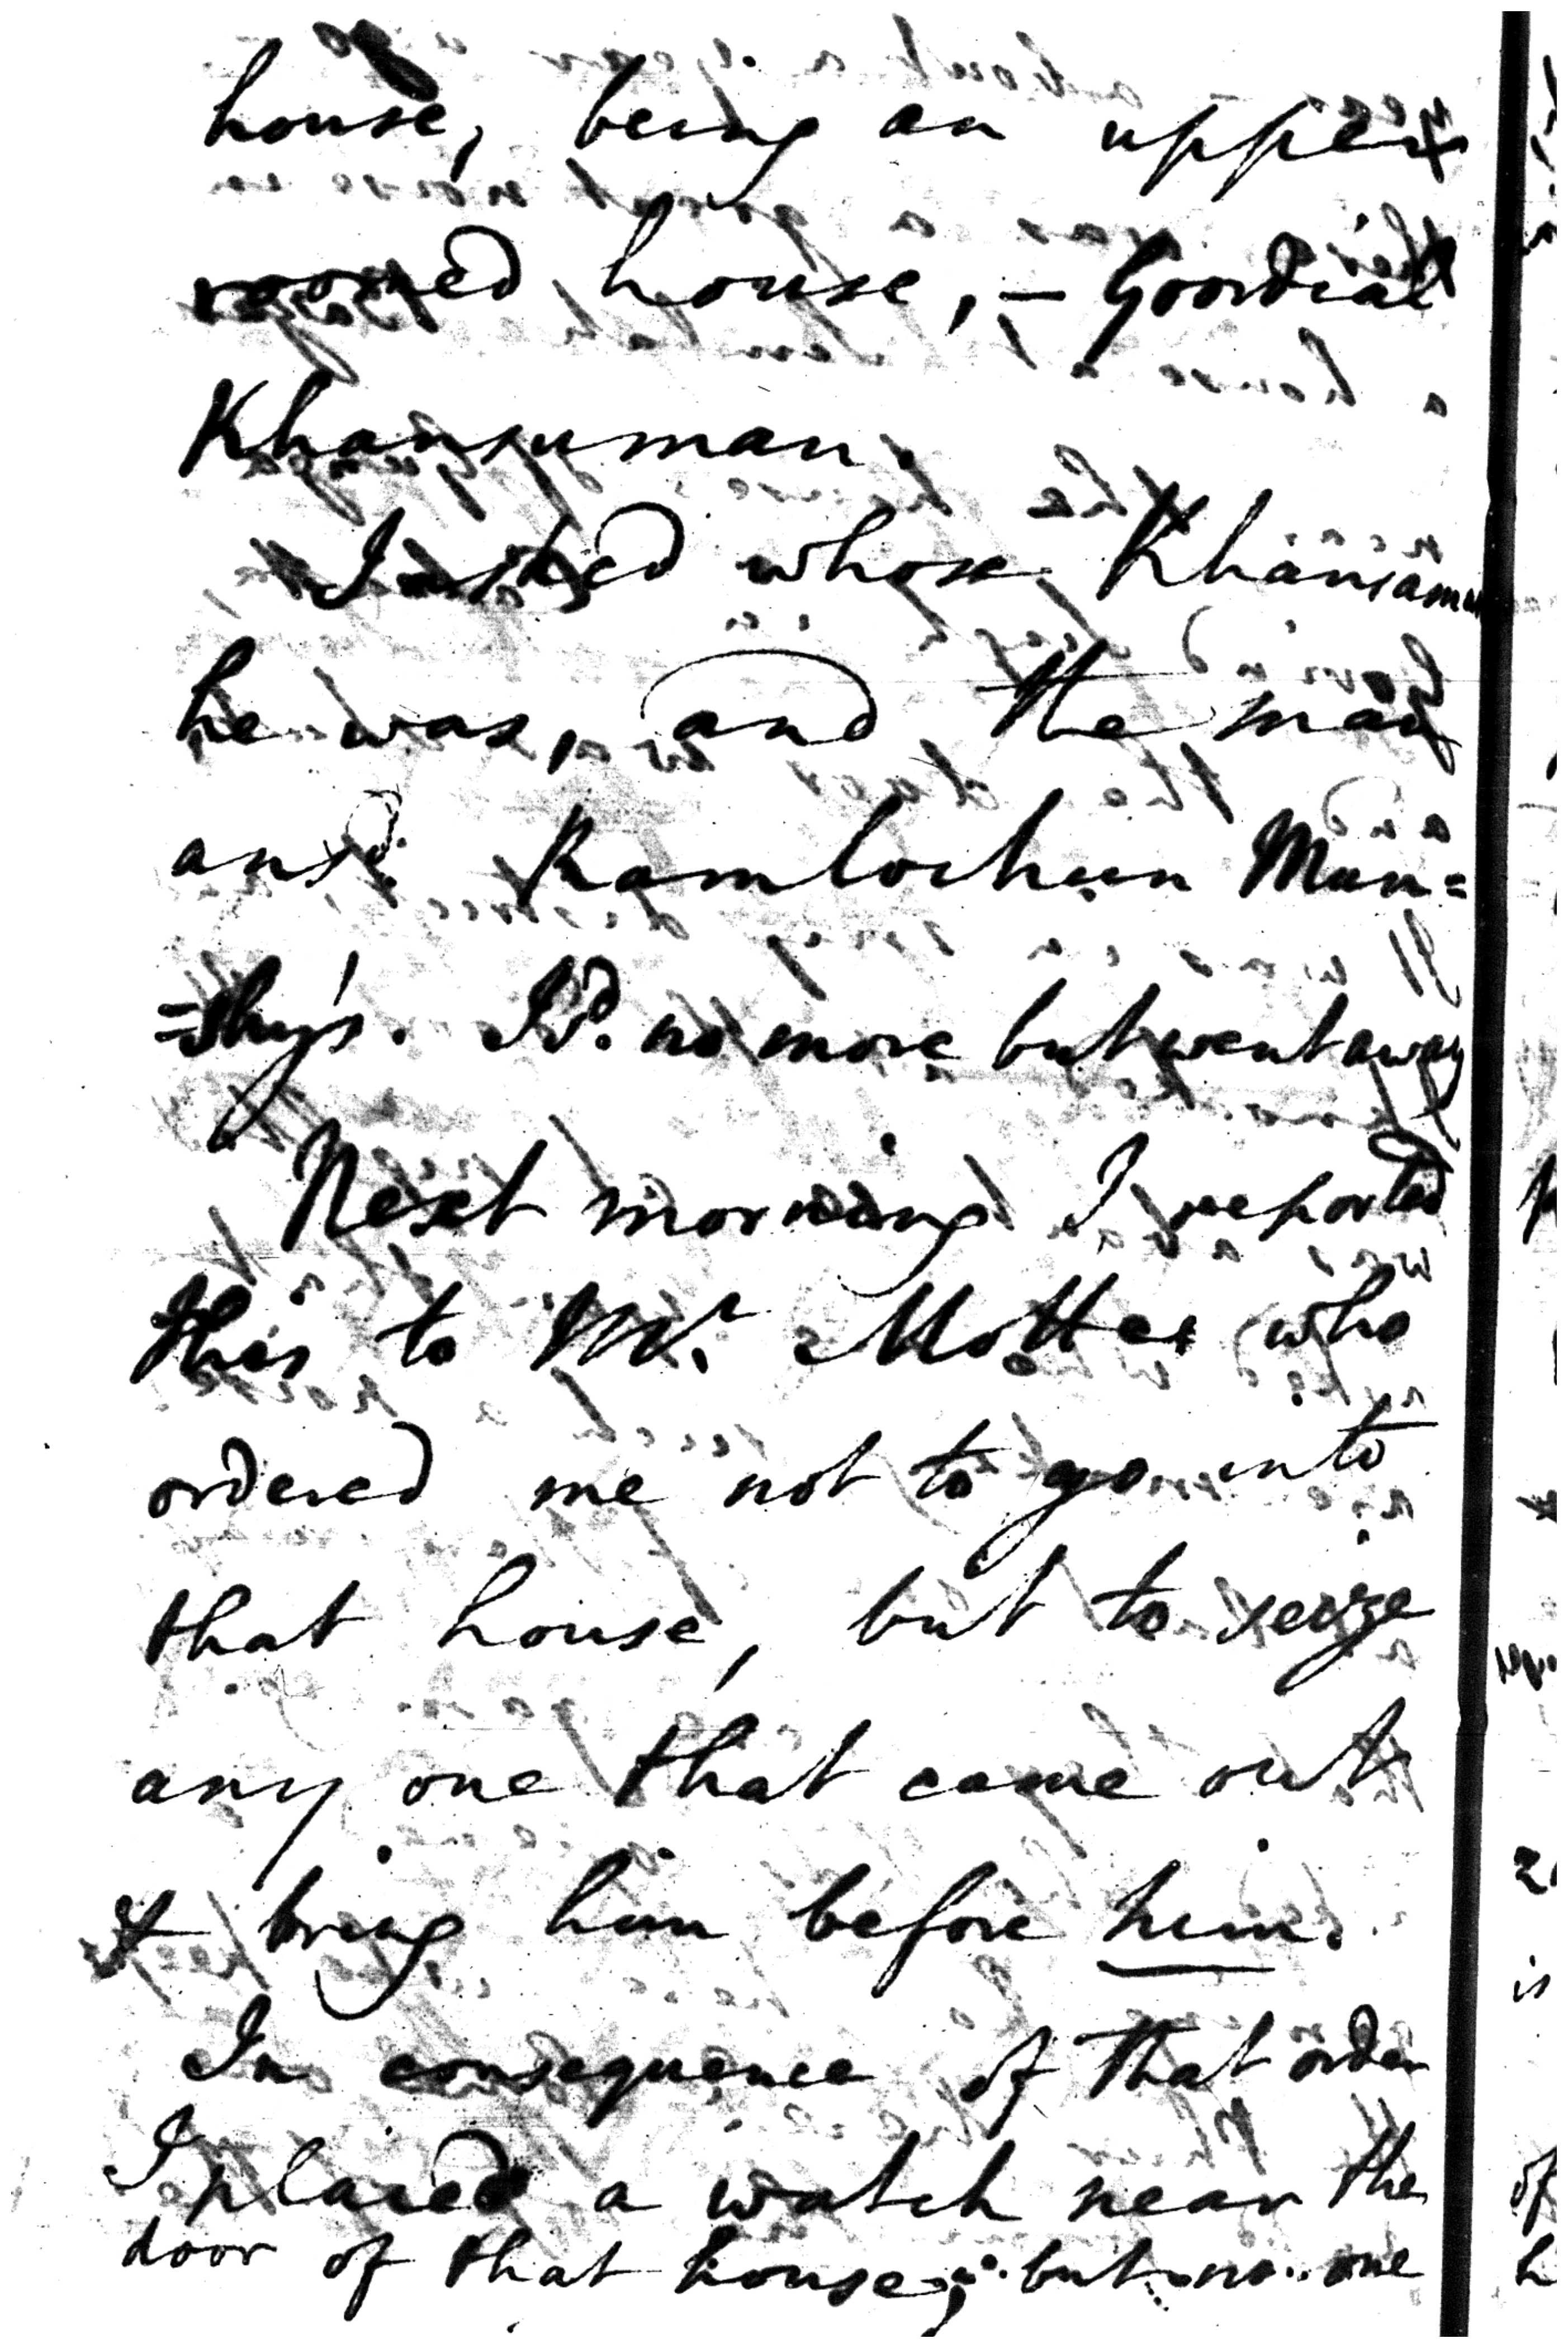 house, being an upper
roomed house, – Goordial
Khansuman.
I asked whose Khansaman
he was, and the man
ansd. Ramlochun Mun=
=shy's. I sd. no more but went away
Next morning I reported
this to Mr. Motte who
ordered me not to go into
that house, but to seize
any one that came out
& bring him before him.
In consequence of that order
I placed a watch near the
door of that house; but no one